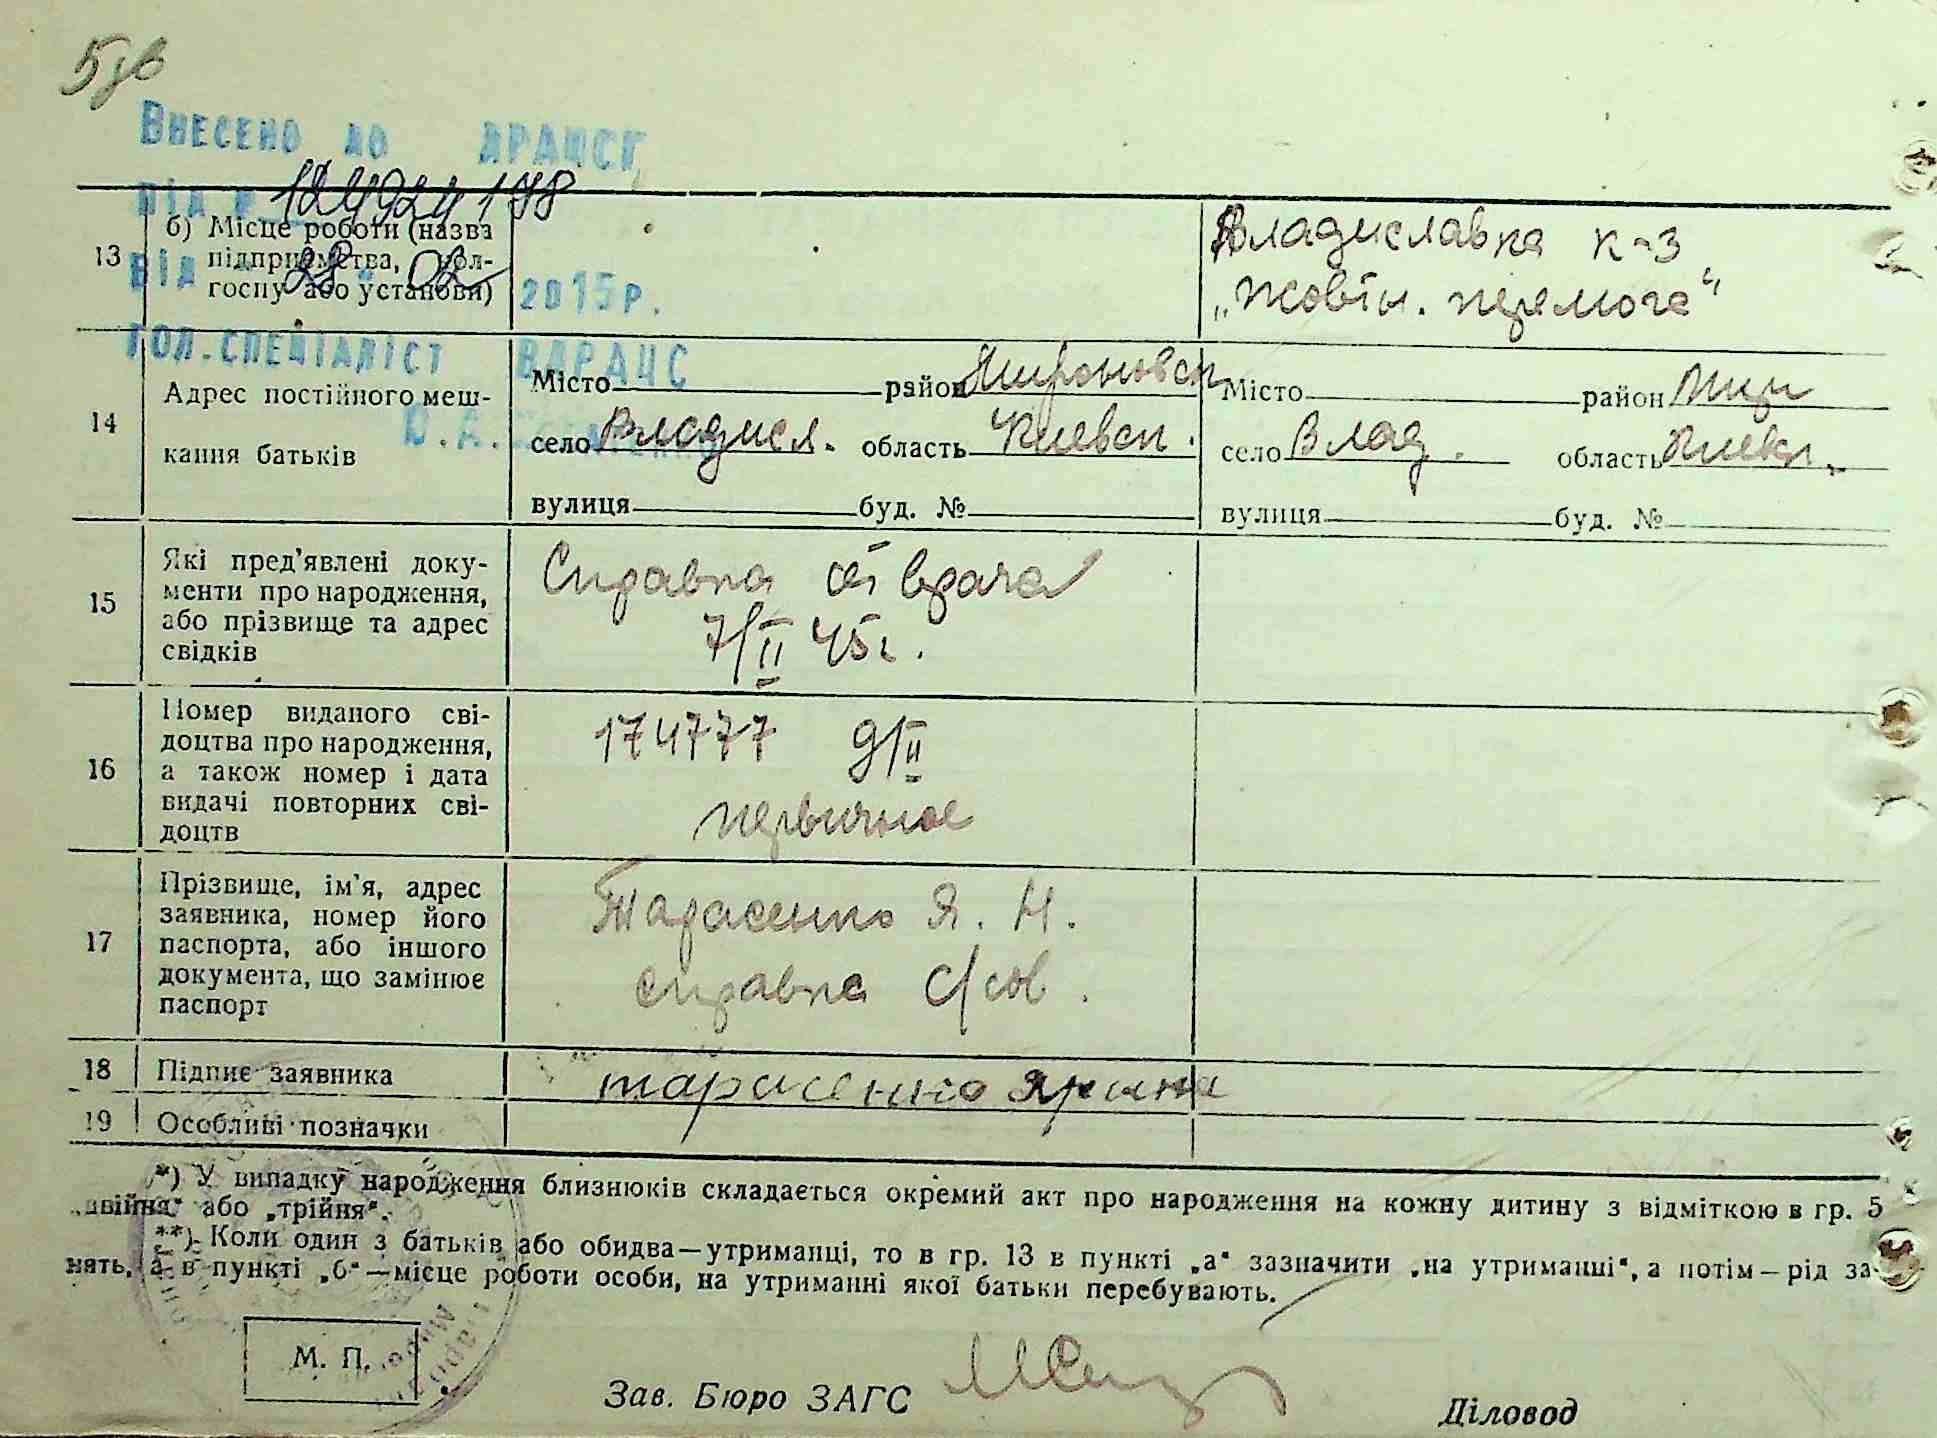 Внесено до ДРАЦСГ
під № 12492178
від 28 02 2015 р.
Гол. спеціаліст ВДРАЦС
Ю. А.
13
б) Місце роботи (назва
підприємства, кол-
госпу або установи)
Владиславка к-з
„Жовтн. перемога“
14
Адрес постійного меш-
кання батьків
Місто район Мироновск
село Владисл. область Киевск.
вулиця буд. №
Місто район Мир
село Влад. область Киевск.
вулиця буд. №
15
Які пред'явлені доку-
менти про народження,
або прізвище та адрес
свідків
Справка от врача
7/II 45г.
16
Номер виданого сві-
доцтва про народження,
а також номер і дата
видачі повторних сві-
доцтв
174777 9/II
первичное
17
Прізвище, ім'я, адрес
заявника, номер його
паспорта, або іншого
документа, що замінює
паспорт
Тарасенко Я. Н.
справка с/сов.
18
Підпис заявника
тарасенко ярына
19
Особливі позначки
*) У випадку народження близнюків складається окремий акт про народження на кожну дитину з відміткою в гр. 5
„двійня“ або „трійня“.
**) Коли один з батьків або обидва—утриманці, то в гр. 13 в пункті „а“ зазначити „на утриманні“, а потім—рід за-
нять, а в пункті „б“—місце роботи особи, на утриманні якої батьки перебувають.
М. П.
Зав. Бюро ЗАГС
Діловод